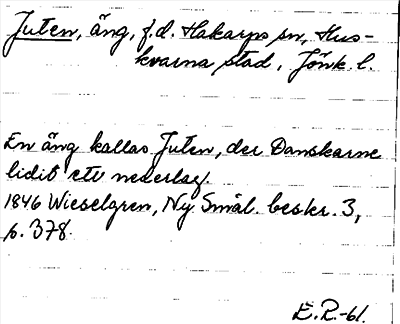 Juten, äng, f.d. Hakarps sn, Hus-
kvarna stad, Jönk. l.
En äng kallas Juten, der Danskarne
lidit ett nederlag.
1846 Wieselgren, Ny Smål. beskr. 3,
s. 378.
E.R.-61.